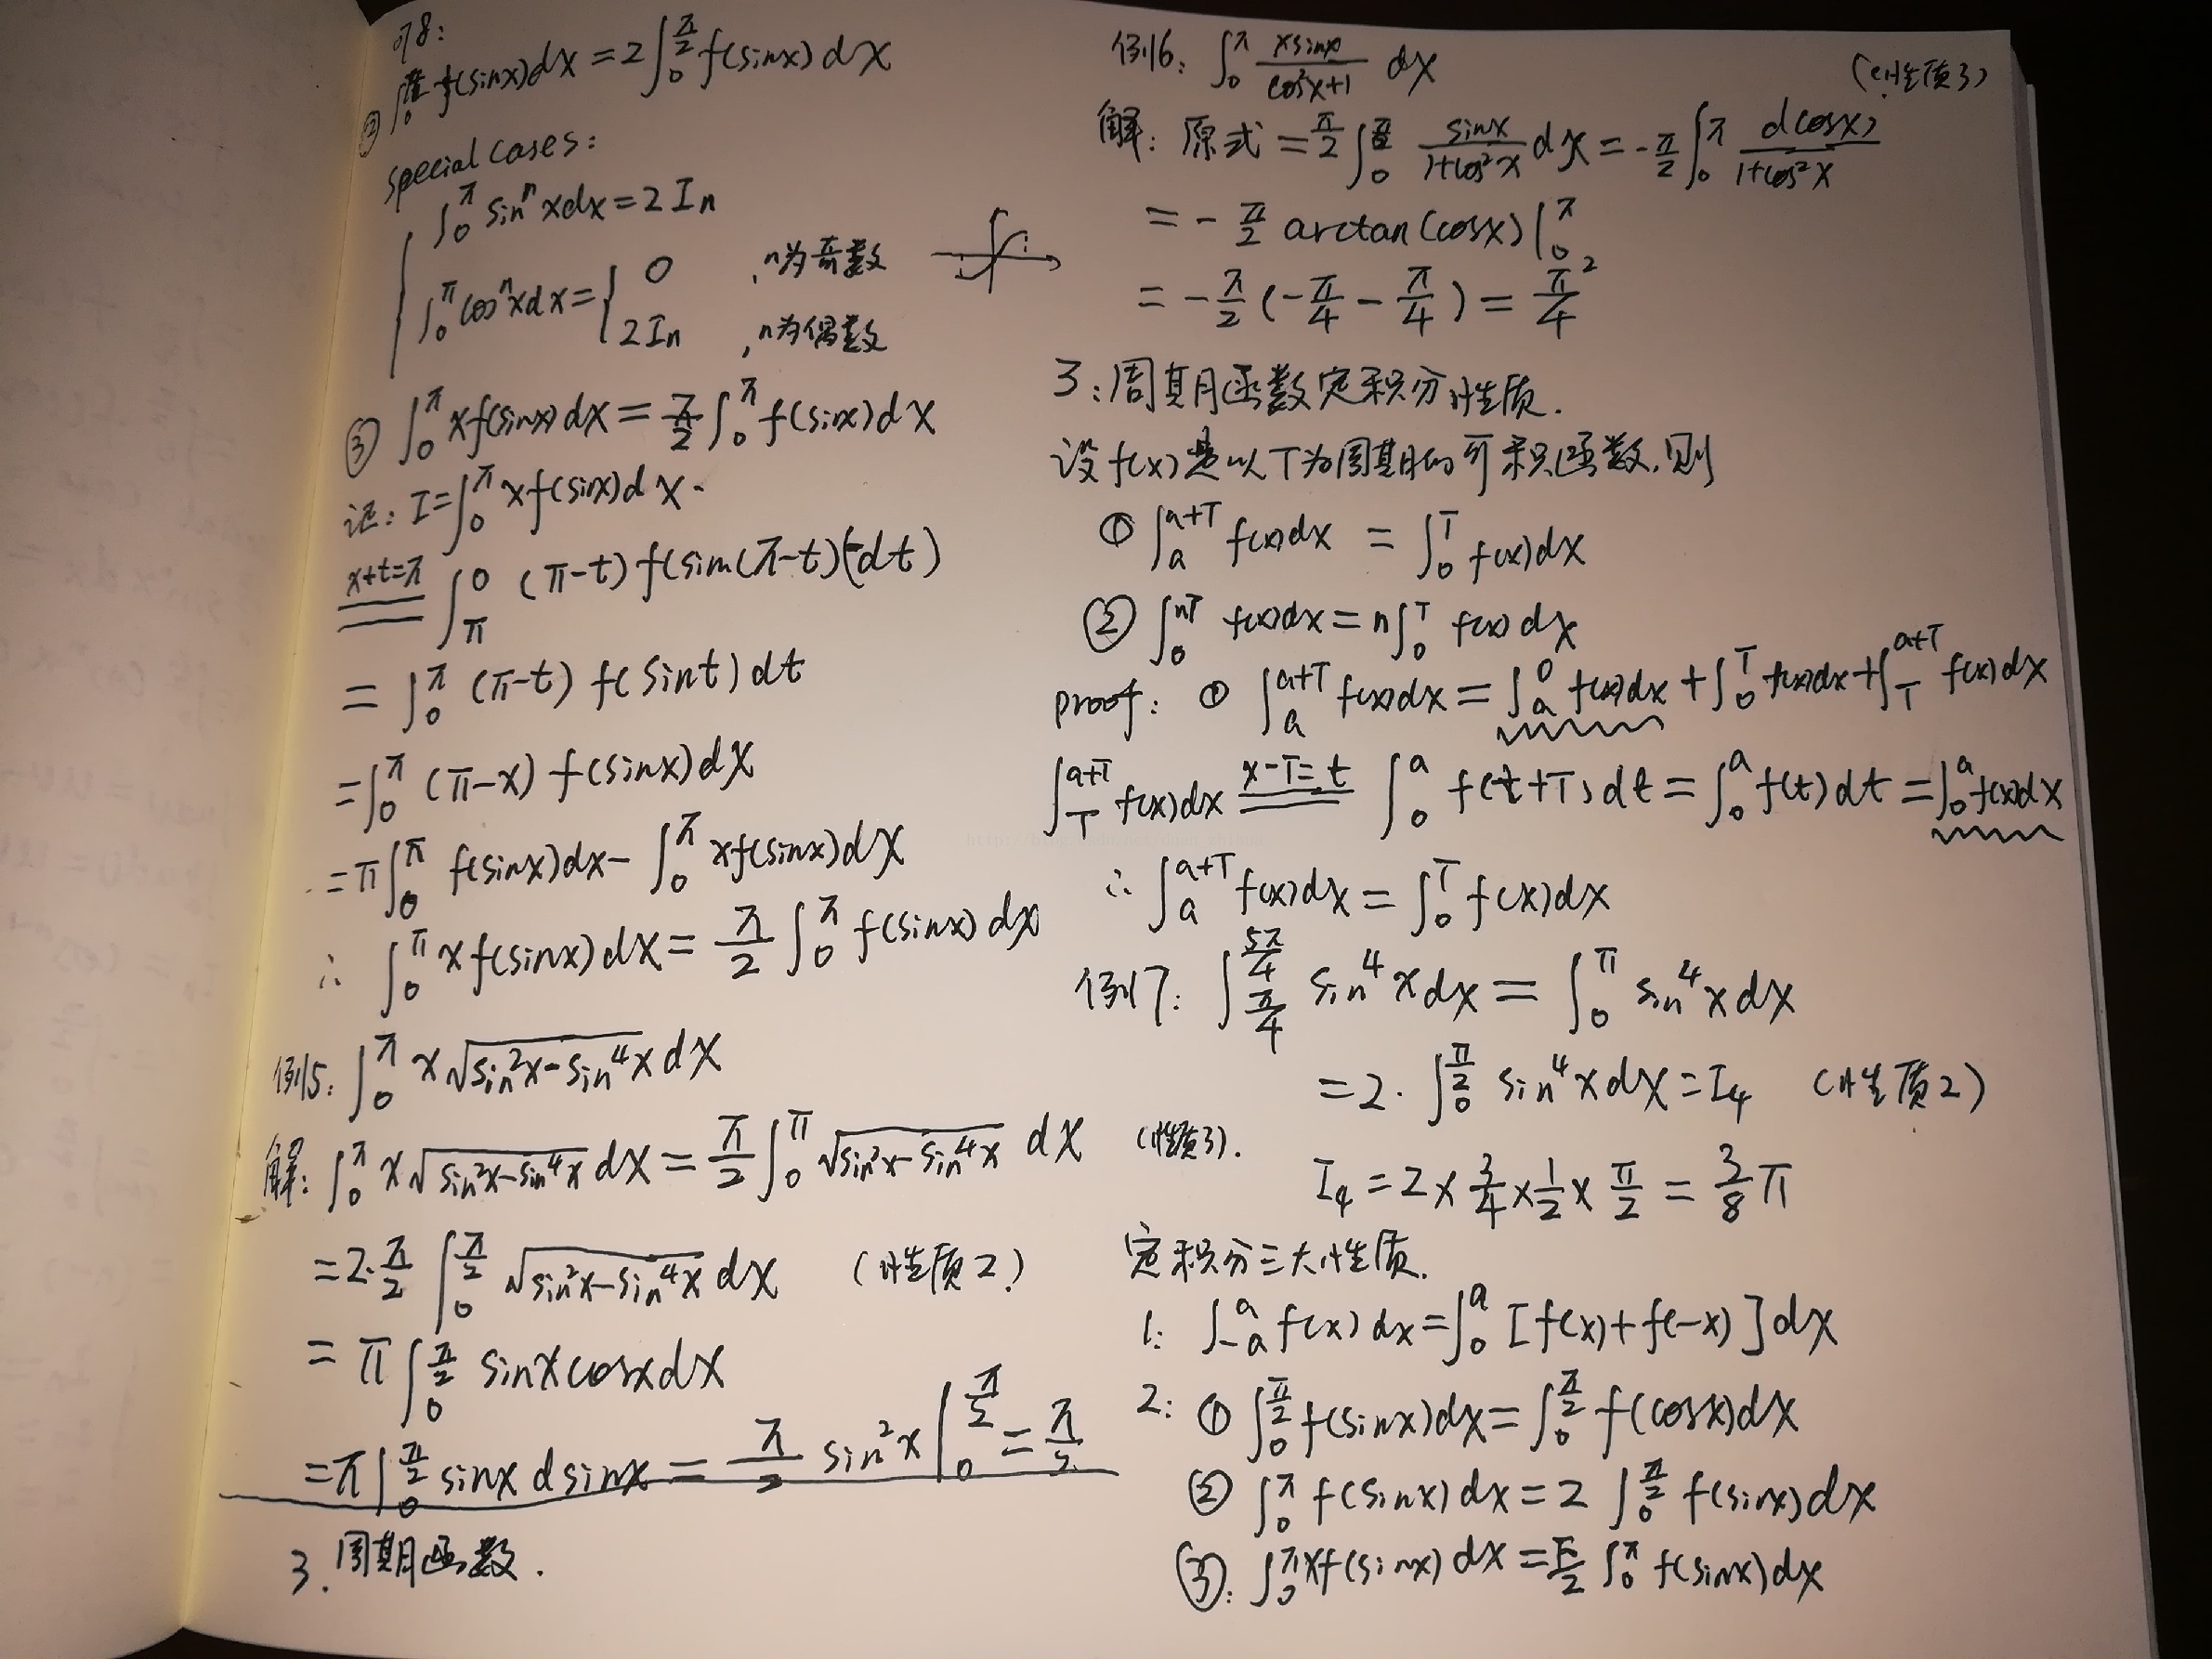 78:
② ∫₀^π f(sinx)dx = 2∫₀^{π/2} f(sinx)dx
special cases:
∫₀^π sinⁿxdx = 2Iₙ
∫₀^π cosⁿxdx = { 0 , n为奇数
2Iₙ , n为偶数
③ ∫₀^π xf(sinx)dx = π/2 ∫₀^π f(sinx)dx
证: I = ∫₀^π xf(sinx)dx.
x+t=π ∫_π^0 (π-t) f(sin(π-t)(-dt)
= ∫₀^π (π-t) f(sint)dt
= ∫₀^π (π-x) f(sinx)dx
= π∫₀^π f(sinx)dx - ∫₀^π xf(sinx)dx
∴ ∫₀^π xf(sinx)dx = π/2 ∫₀^π f(sinx)dx
例5: ∫₀^π x√(sin²x-sin⁴x) dx
解: ∫₀^π x√(sin²x-sin⁴x) dx = π/2 ∫₀^π √(sin²x-sin⁴x) dx (性质3).
= 2·π/2 ∫₀^{π/2} √(sin²x-sin⁴x) dx (性质2)
= π∫₀^{π/2} sinxcosxdx
= π∫₀^{π/2} sinx dsinx = π/2 sin²x |₀^{π/2} = π/2
3. 周期函数.
例6: ∫₀^π xsinx/(cos²x+1) dx
(性质3)
解: 原式 = π/2 ∫₀^π sinx/(1+cos²x) dx = -π/2 ∫₀^π d(cosx)/(1+cos²x)
= -π/2 arctan(cosx)|₀^π
= -π/2 (-π/4 - π/4) = π²/4
3: 周期函数定积分性质.
设f(x)是以T为周期的可积函数,则
① ∫_a^{a+T} f(x)dx = ∫₀^T f(x)dx
② ∫₀^{nT} f(x)dx = n∫₀^T f(x)dx
proof: ① ∫_a^{a+T} f(x)dx = ∫_a^0 f(x)dx + ∫₀^T f(x)dx + ∫_T^{a+T} f(x)dx
∫_T^{a+T} f(x)dx x-T=t ∫₀^a f(t+T)dt = ∫₀^a f(t)dt = ∫₀^a f(x)dx
∴ ∫_a^{a+T} f(x)dx = ∫₀^T f(x)dx
例7: ∫_{π/4}^{5π/4} sin⁴xdx = ∫₀^π sin⁴xdx
= 2·∫₀^{π/2} sin⁴xdx = I₄ (性质2)
I₄ = 2×3/4×1/2×π/2 = 3/8 π
定积分三大性质.
1: ∫_{-a}^a f(x)dx = ∫₀^a [f(x)+f(-x)]dx
2: ① ∫₀^{π/2} f(sinx)dx = ∫₀^{π/2} f(cosx)dx
② ∫₀^π f(sinx)dx = 2∫₀^{π/2} f(sinx)dx
③: ∫₀^π xf(sinx)dx = π/2 ∫₀^π f(sinx)dx